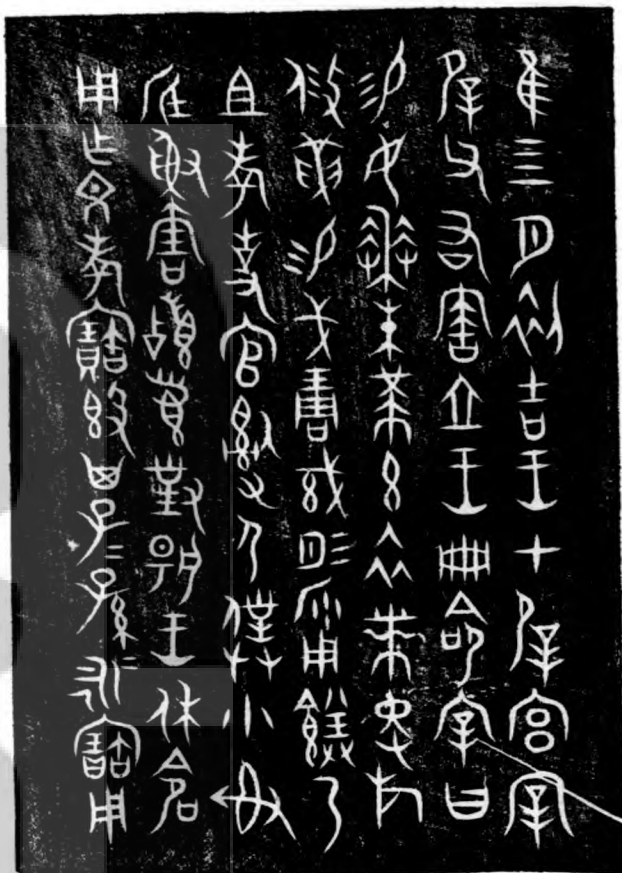 隹三月初吉王才屖宮宰
屖父右害立王冊命宰曰
易女朱黃玄衣黹屯㫃
攸革易戈琱彤沙用乃
且考事官𤔲尸僕小射
底魚害首對揚王休命
用乍文考寶簋其子=孫=永寶用